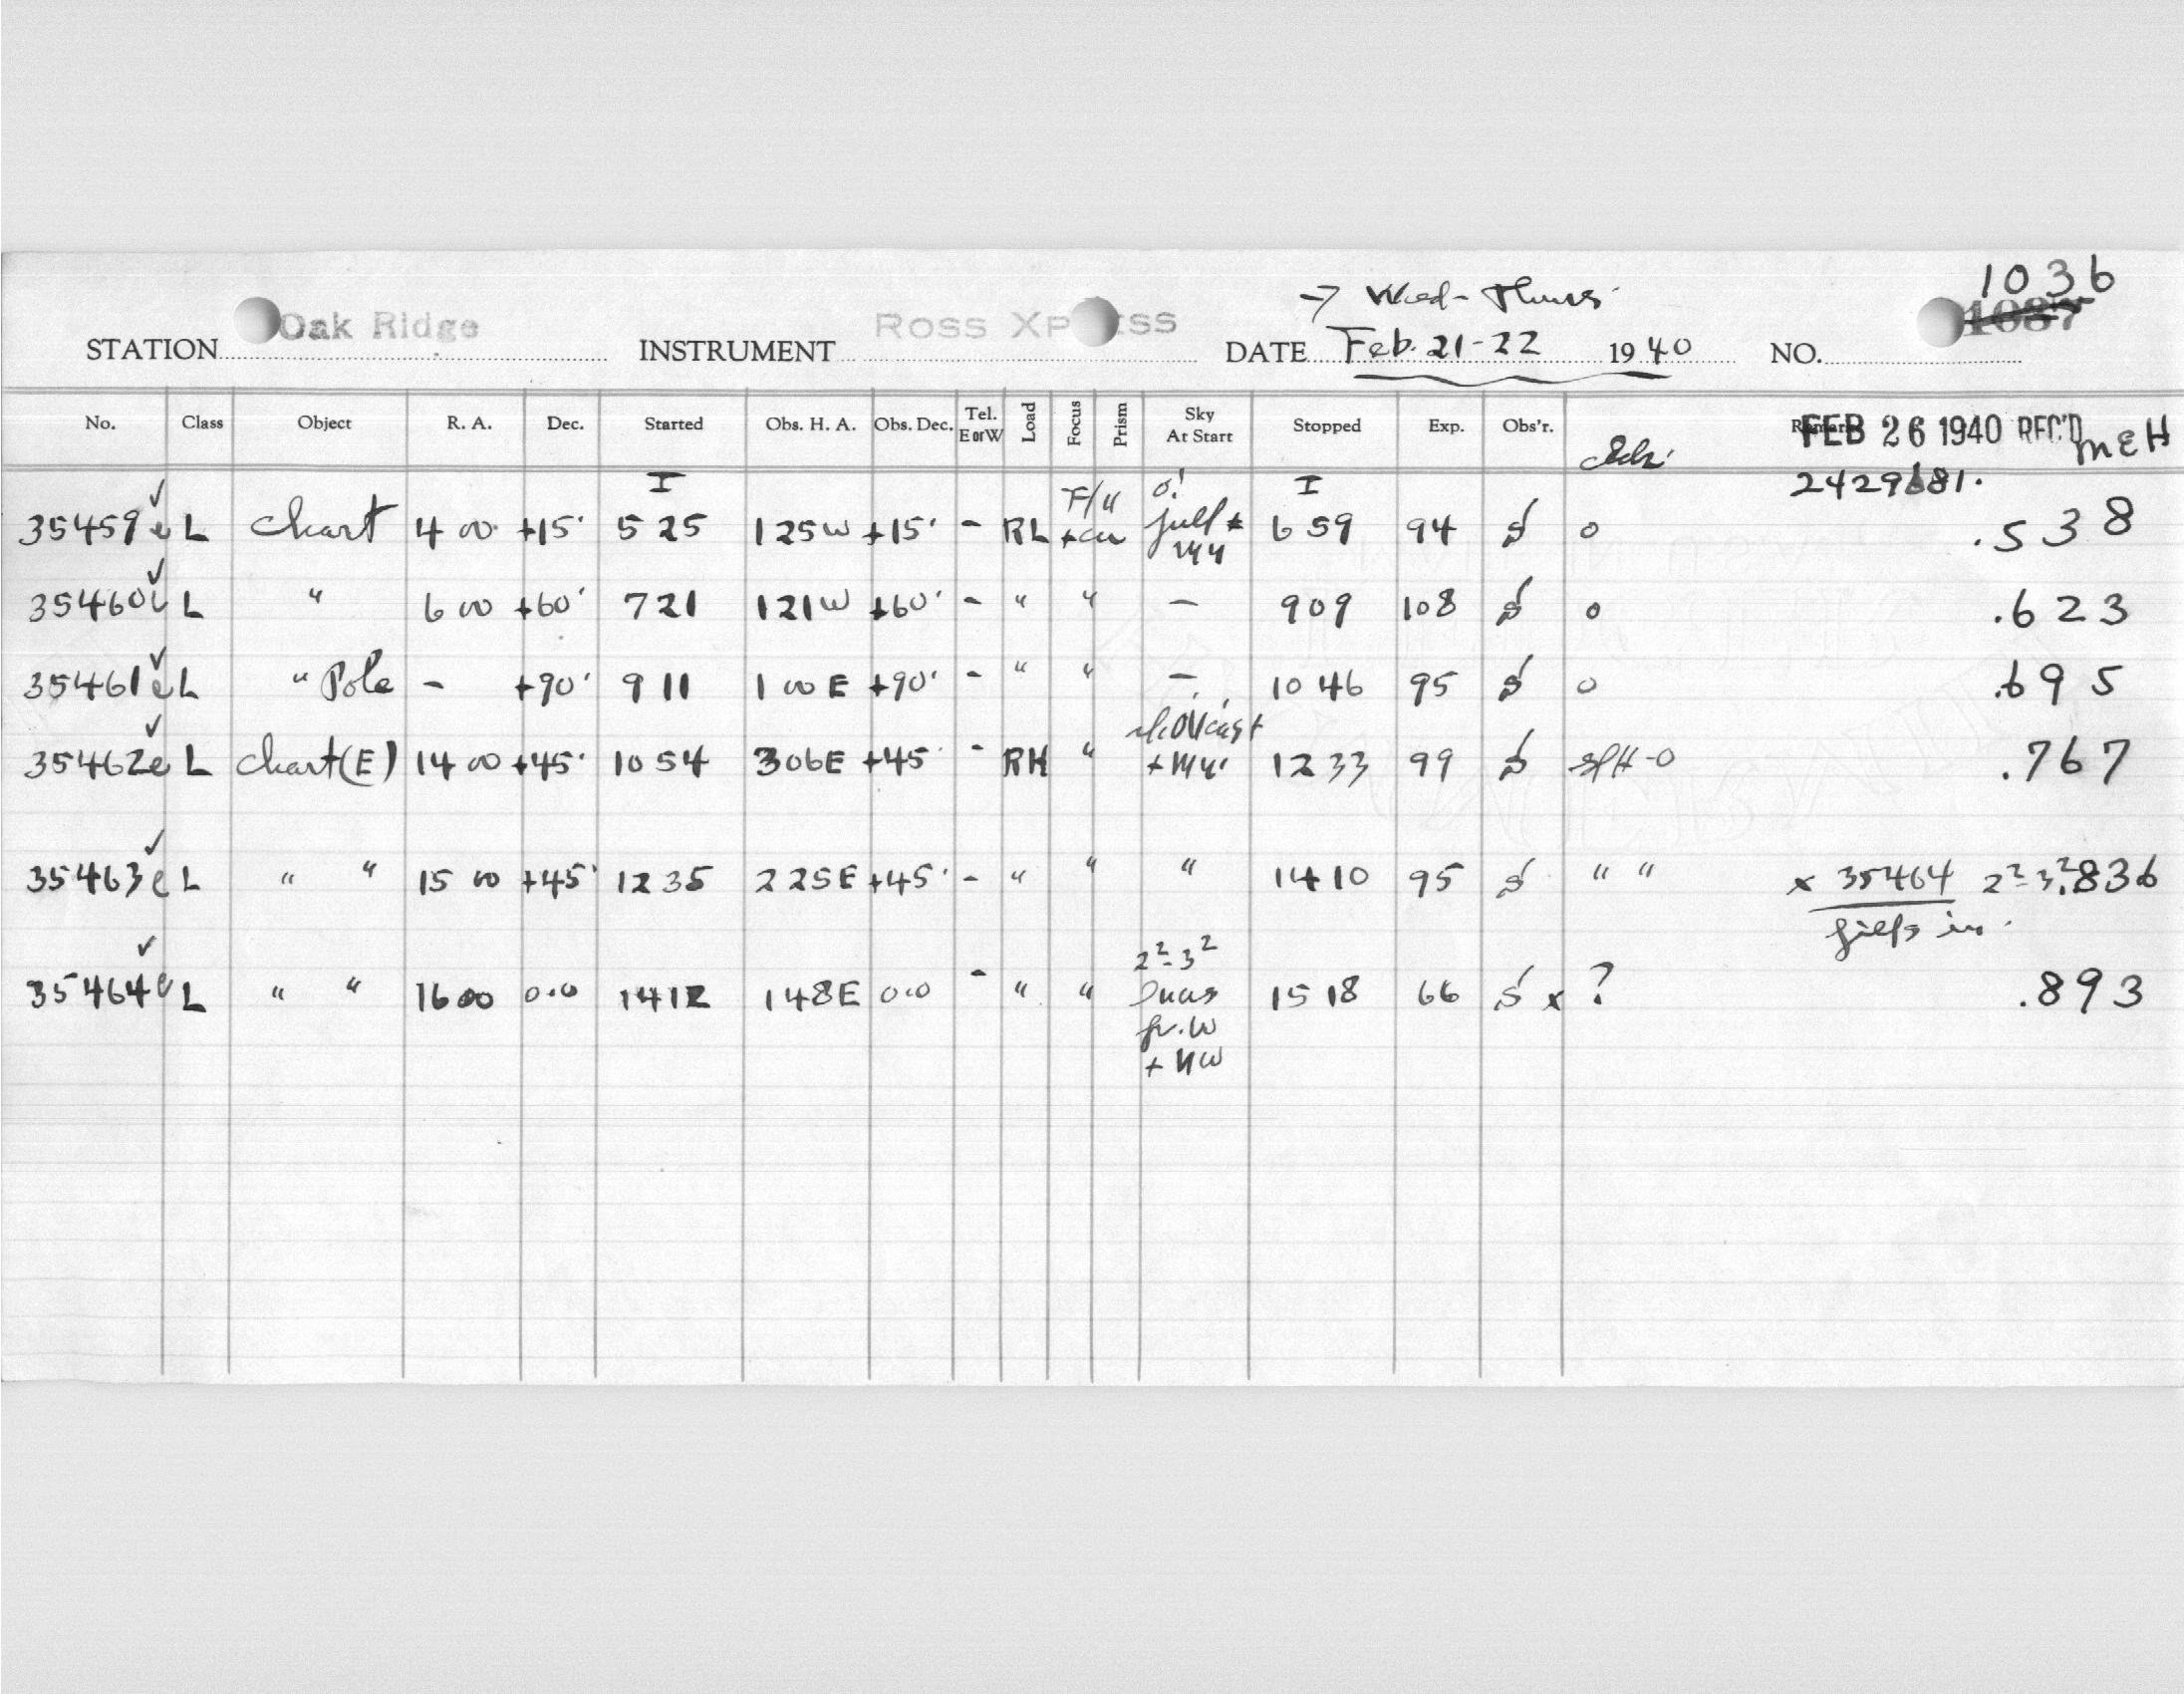 1036
→ Wed - Thurs.
STATION Oak Ridge INSTRUMENT Ross Xp ss DATE Feb. 21-22 1940 NO. 1037
No. Class Object R. A. Dec. Started Obs. H. A. Obs. Dec. Tel. E or W Load Focus Prism Sky At Start Stopped Exp. Obs'r. Remar FEB 26 1940 REC'D MEH
I I 2429681.
35459 e ✓ L Chart 4 00 +15° 5 25 1 25 W +15° - RL F/ 6 59 94 S 0 .538
35460 ✓ L " 6 00 +60° 7 21 1 21 W +60° - " " — 9 09 108 S 0 .623
35461 e ✓ L " Pole - +90° 9 11 1 00 E +90° - " " — 10 46 95 S 0 .695
35462 e ✓ L Chart (E) 14 00 +45° 10 54 3 06 E +45° - RH " 12 33 99 S -0 .767
35463 e ✓ L " " 15 00 +45° 12 35 2 25 E +45° - " " " 14 10 95 S " " x 35464 2²-3² .836
in.
35464 e ✓ L " " 16 00 0.0 14 12 1 48 E 0.0 - " " 2²-3² 15 18 66 S x ? .893
fr. W
+ NW